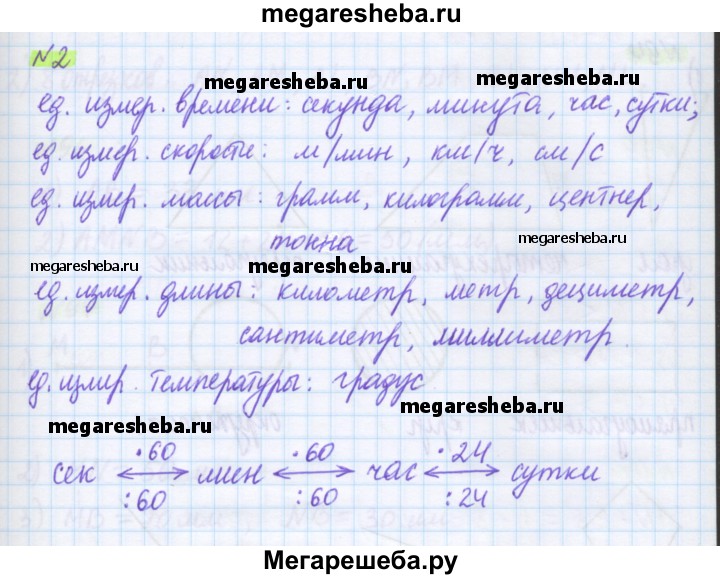 megaresheba.ru
№2
megaresheba.ru
megaresheba.ru
ед. измер. времени: секунда, минута, час, сутки;
ед. измер. скорости: м/мин, км/ч, см/с
ед. измер. массы: грамм, килограмм, центнер,
тонна
megaresheba.ru
megaresheba.ru
megaresheba.ru
ед. измер. длины: километр, метр, дециметр,
сантиметр, миллиметр.
ед. измир. температуры: градус
megaresheba.ru
megaresheba.ru
·60 ·60 ·24
сек мин час сутки
:60 :60 :24
Мегарешеба.ру